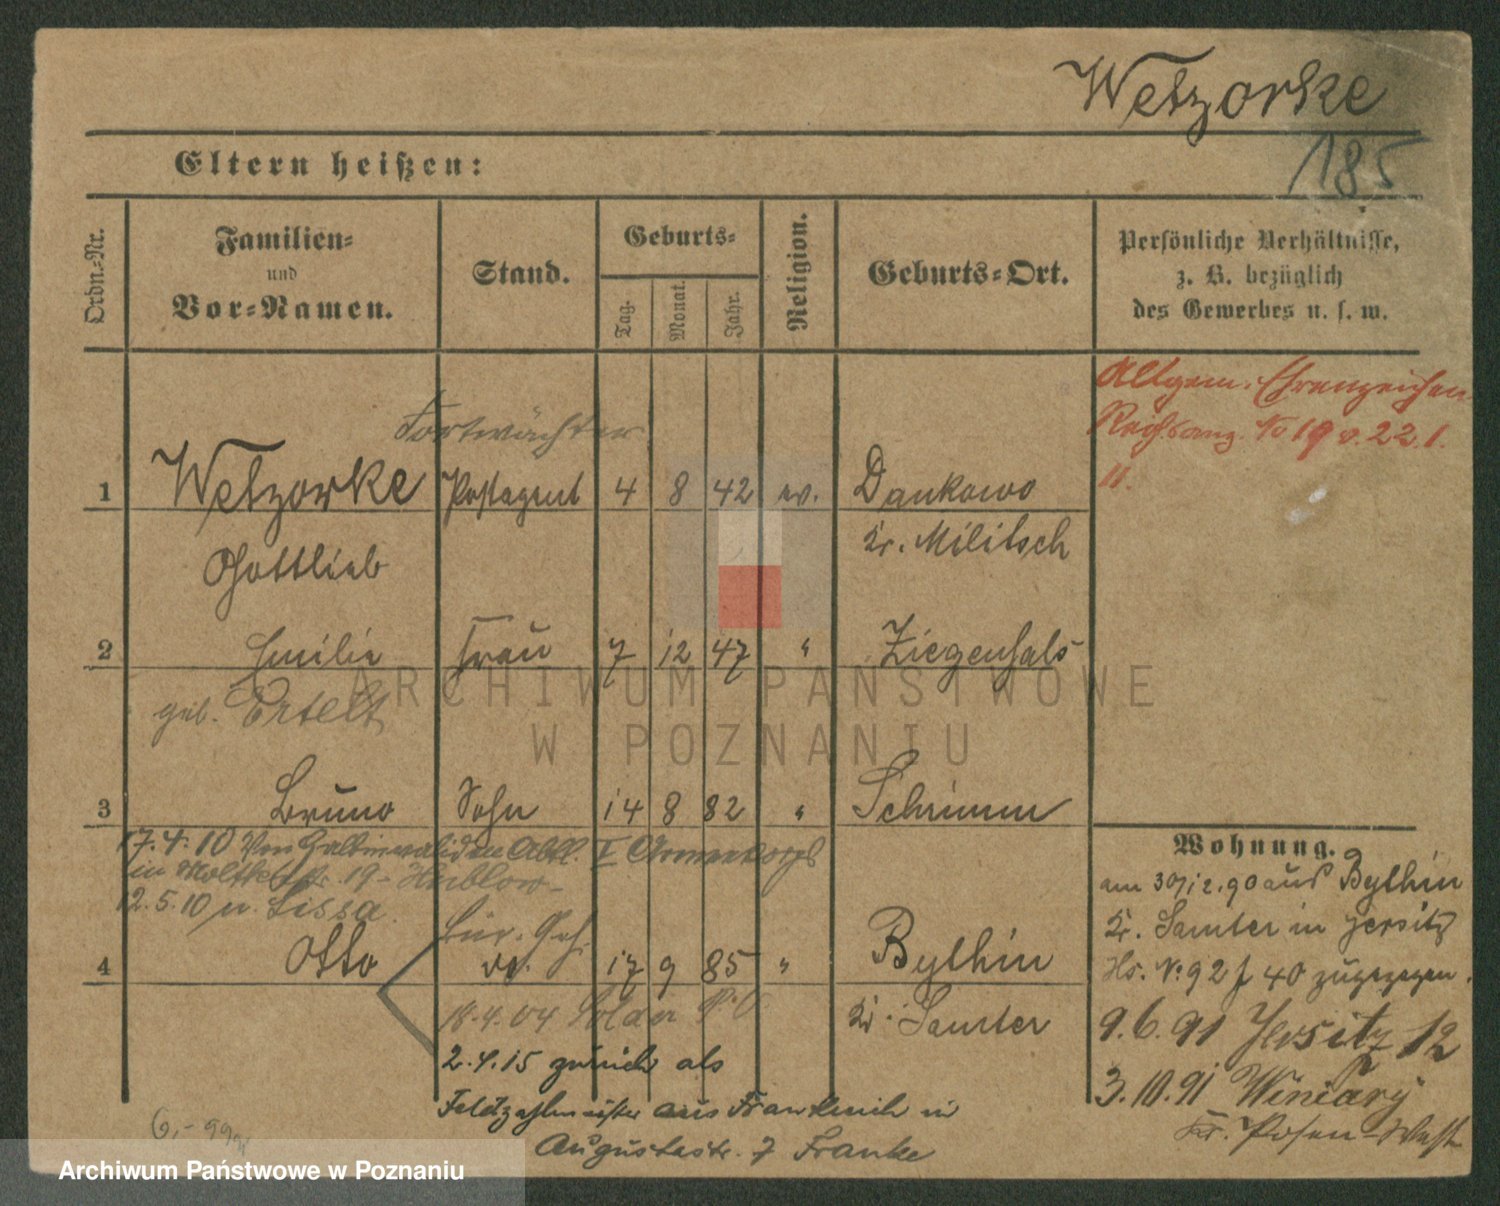 Wetzorke
185
Eltern heißen:
Ordn.-Nr.
Familien-
und
Vor-Namen.
Stand.
Geburts-
Tag.
Monat.
Jahr.
Religion.
Geburts-Ort.
Persönliche Verhältnisse,
z. B. bezüglich
des Gewerbes u. s. w.
Allgem. Ehrenzeichen
Reichsanz. No 19 v. 22.1.
11.
Fortwächter
1 Wetzorke Postagent 4 8 42 ev. Dankowo
Gottlieb Kr. Militsch
2 Emilie Frau 7 12 47 " Ziegenhals
geb. Ertelt
3 Bruno Sohn 14 8 82 " Schrimm
17.4.10 Von Halbinvaliden Abtl. V Armeekorps
in Moltkestr. 19 -
12.5.10 n. Lissa.
Bür. Geh.
4 Otto do. 17 9 85 " Bythin
18.4.04 Kr. Samter
2.4.15 zurück als
Feldzahlmeister aus Frankreich in
Augustastr. 7 Franke
Wohnung.
am 30/12.90 aus Bythin
Kr. Samter in Jersitz
Hs. No 92 f 40 zugezogen.
9.6.91 Jersitz 12
3.10.91 Winiary
Kr. Posen-West
ARCHIWUM PAŃSTWOWE
W POZNANIU
Archiwum Państwowe w Poznaniu